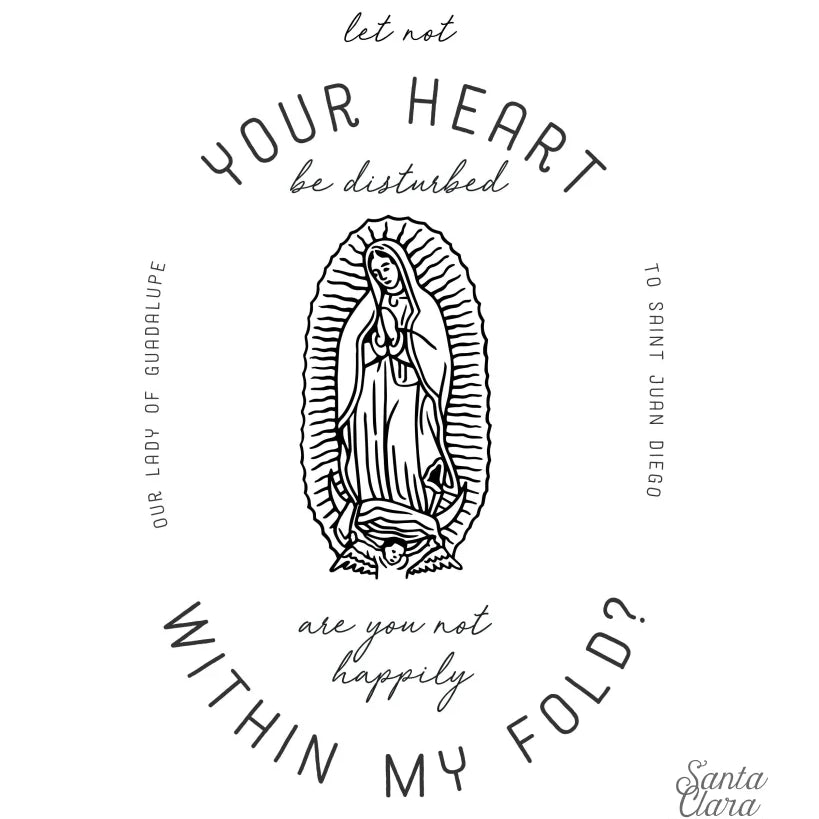 let not
YOUR HEART
be disturbed
OUR LADY OF GUADALUPE
TO SAINT JUAN DIEGO
are you not
happily
WITHIN MY FOLD?
Santa
Clara